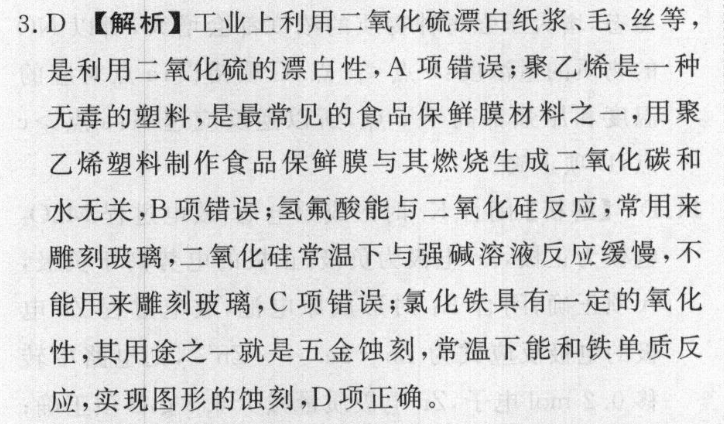 3. D 【解析】工业上利用二氧化硫漂白纸浆、毛、丝等,
是利用二氧化硫的漂白性,A 项错误;聚乙烯是一种
无毒的塑料,是最常见的食品保鲜膜材料之一,用聚
乙烯塑料制作食品保鲜膜与其燃烧生成二氧化碳和
水无关,B 项错误;氢氟酸能与二氧化硅反应,常用来
雕刻玻璃,二氧化硅常温下与强碱溶液反应缓慢,不
能用来雕刻玻璃,C 项错误;氯化铁具有一定的氧化
性,其用途之一就是五金蚀刻,常温下能和铁单质反
应,实现图形的蚀刻,D 项正确。